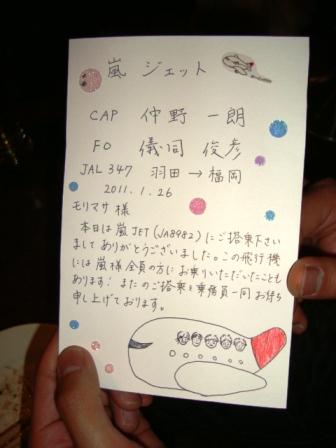 嵐 ジェット
CAP 仲野 一朗
FO 儀同 俊彦
JAL 347 羽田 → 福岡
2011.1.26
モリマサ 様
本日は嵐JET(JA8982)にご搭乗下さい
ましてありがとうございました。この飛行機
には嵐様全員の方にお乗りいただいたことも
あります! またのご搭乗を乗務員一同お待ち
申し上げております。